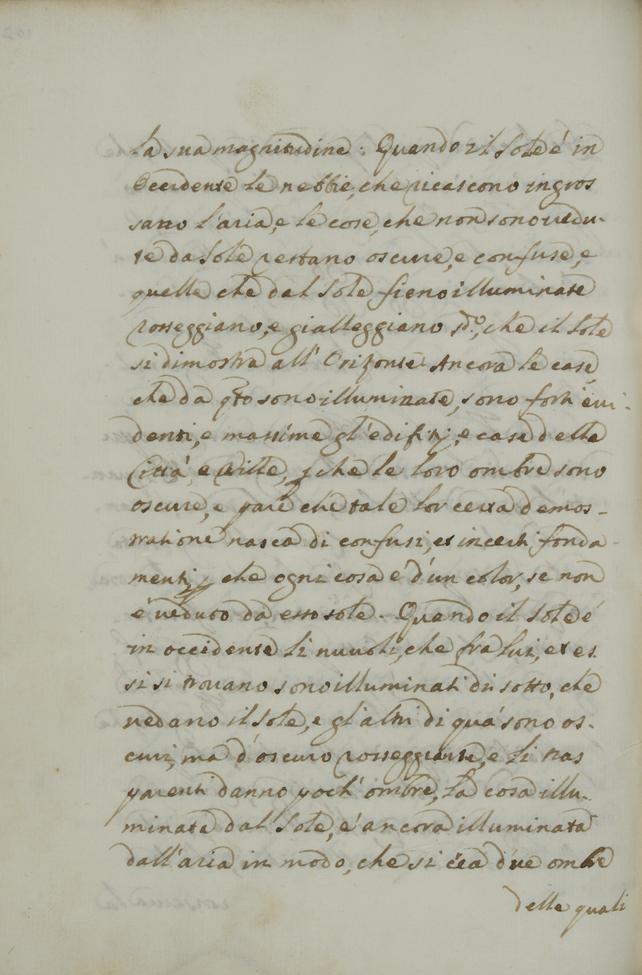 la sua magnitudine: Quando il sole è in
Occidente le nebbie, che ricascono ingros
sano l'aria, e le cose, che non sono vedu-
te da Sole restano oscure, e confuse, e
quelle che dal Sole sieno illuminate
rosseggiano, e gialleggiano sdo, che il sole
si dimostra all'Orizonte. Ancora le case
che da qto sono illuminate, sono forti evi-
denti, e massime gl'edifitj, e case delle
Città, e Ville, che le loro ombre sono
oscure, e pare che tale lor certa demos-
tratione nasca di confusi, et incerti fonda-
menti, che ogni cosa è d'un color, se non
è veduto da esso sole. Quando il sole é
in occidente li nuvoli, che fra lui, et es
si si trovano sono illuminati di sotto, che
vedano il sole, e gl'altri di quà sono os-
curi, ma d'oscuro rosseggiante, e li tras
parenti danno poch'ombre, la cosa illu-
minata dal Sole, é ancora illuminata
dall'aria in modo, che si crea due ombre
delle quali